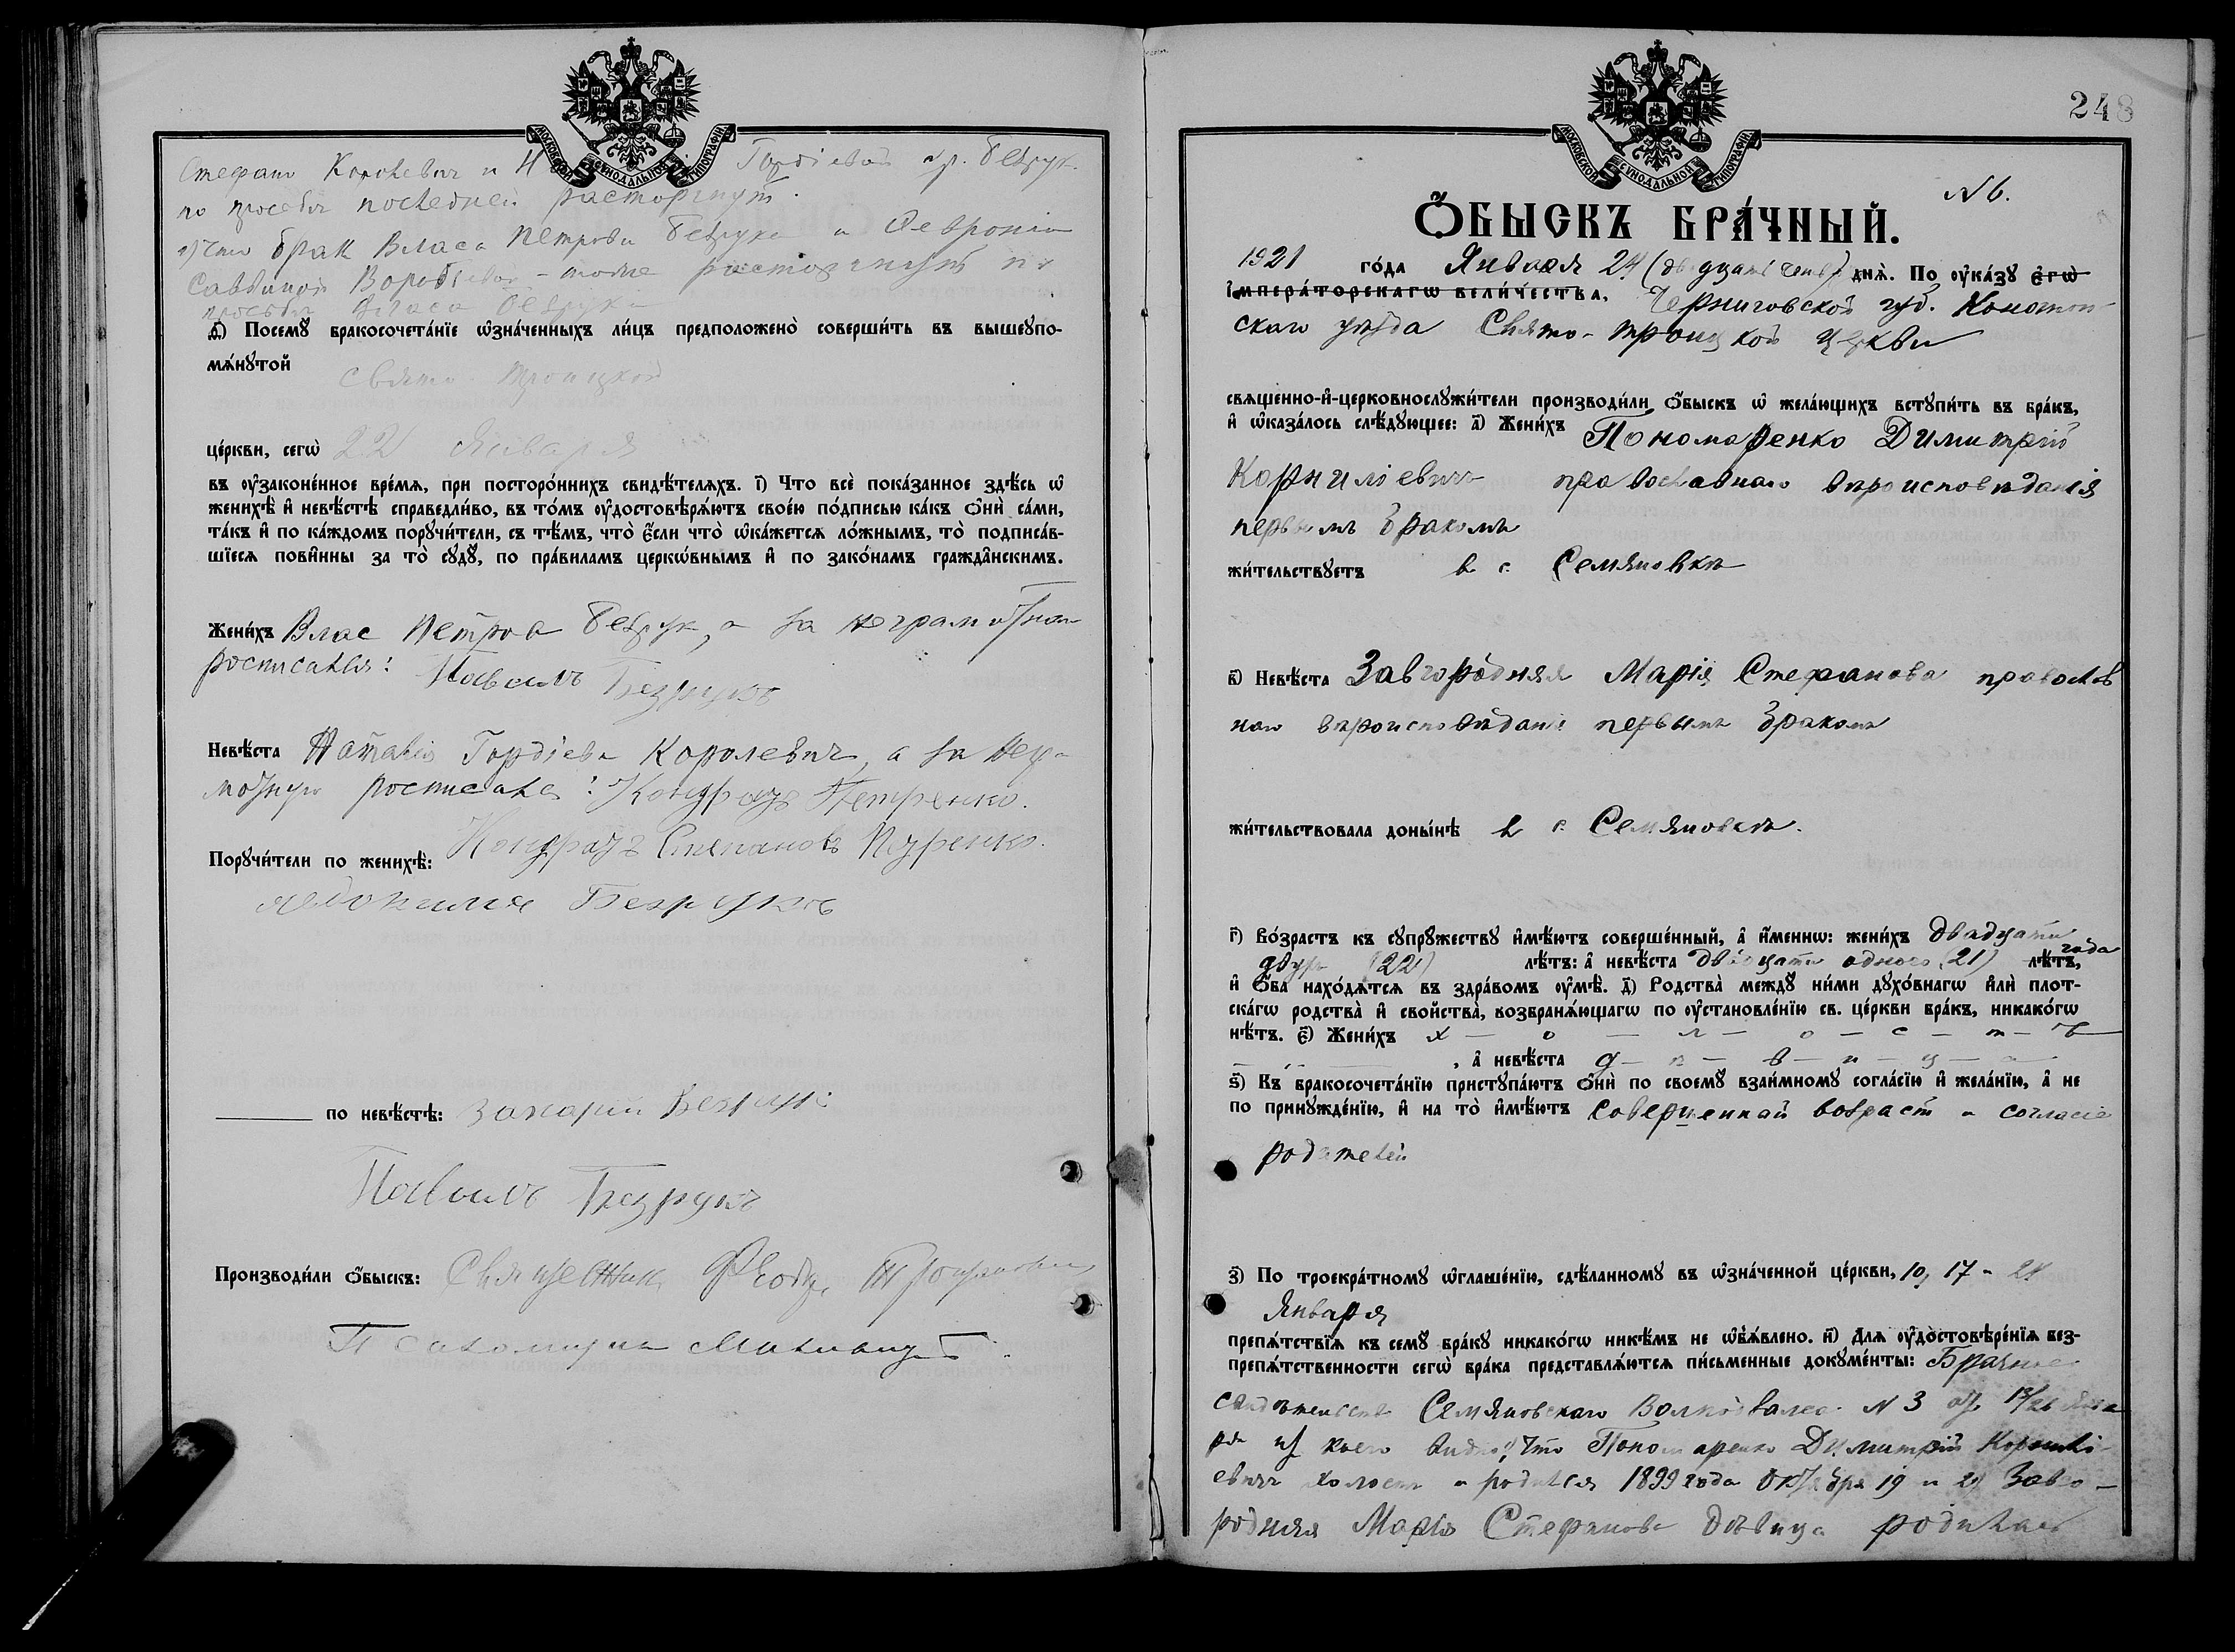 Стефана Королевич и Н Гордіевой ур. Безрук
по просьбѣ последней расторгнут.
что брак Власа Петрова Безрука и Февроніи
Саввиной Воробьевой – тоже расторгнут по
просьбѣ Власа Безрука
д҃) Посемꙋ бракосочета́нїе ѡ҆зна́ченныхъ ли́цъ предположено̀ соверши́ть въ вышеꙋпо-
мѧ́нꙋтой
Свято-Троицкой
це́ркви, сегѡ̀ 22 Января
въ ᲂу҆законе́нное вре́мѧ, при посторо́ннихъ свидѣ́телѧхъ. і҃) Что всѐ пока́занное здѣ́сь ѡ҆
женихѣ̀ и҆ невѣ́стѣ справедли́во, въ то́мъ ᲂу҆достовѣрѧ́ютъ свое́ю по́дписью ка́къ ѻ҆нѝ са́ми,
та́къ и҆ по ка́ждомъ порꙋчи́тели, съ тѣ́мъ, что̀ є҆́сли что̀ ѡ҆ка́жетсѧ ло́жнымъ, то̀ подписа́в-
шїесѧ пови́нны за то̀ сꙋдꙋ̀, по пра́виламъ церкѡ́внымъ и҆ по зако́намъ гражда̑нскимъ.
Жени́хъ Влас Петров Безрук, а за неграмотнаго
росписался: Павелъ Безрукъ
Невѣ́ста Наталія Гордіева Королевич, а за негра
мотную росписался: Кондратъ Петренко.
Порꙋчи́тели по женихѣ̀: Кондратъ Степановъ
Безруковъ
по невѣ́стѣ: Захарій Безрукъ
Павелъ Безрукъ
Производи́ли ѻ҆́быскъ: Священникъ
Псаломщикъ
МОСКОВСКОЙ СѴНОДАЛЬНОЙ ТИПОГРАФІИ
МОСКОВСКОЙ СѴНОДАЛЬНОЙ ТИПОГРАФІИ
248
N 6.
Ѻ҆́БЫСКЪ БРА́ЧНЫЙ.
1921 го́да Января 24 (двадцать четв.) днѧ̀. По ᲂу҆ка́зꙋ є҆гѡ̀
і҆мпера́торскагѡ вели́чества, Черниговской губ. Конотоп-
скаго уѣзда Свято-Троицкой церкви
свѧщенно-и҆-церковнослꙋжи́тели производи́ли ѻ҆́быскъ ѡ҆ жела́ющихъ встꙋпи́ть въ бра́къ,
и҆ ѡ҆каза́лось слѣ́дꙋющее: а҃) Жени́хъ Пономаренко Димитрій
Корниліевичъ православнаго вѣроисповѣданія
первымъ бракомъ
жи́тельствꙋетъ в с. Семяновкѣ
в҃) Невѣ́ста Завгородняя Марія Стефанова православ
наго вѣроисповѣданія первымъ бракомъ
жи́тельствовала доны́нѣ в с. Семяновкѣ.
г҃) Во́зрастъ къ сꙋпрꙋ́жествꙋ и҆мѣ́ютъ соверше́нный, а҆ и҆́меннѡ: жени́хъ двадцати
двух (22) лѣ́тъ: а҆ невѣ́ста двадцати одного (21) лѣ́тъ, года
и҆ ѻ҆́ба нахо́дѧтсѧ въ здра́вомъ ᲂу҆мѣ̀. д҃) Родства̀ междꙋ̀ ни́ми дꙋхо́внагѡ и҆лѝ плот-
ска́гѡ родства̀ и҆ сво́йства̀, возбранѧ́ющагѡ по ᲂу҆становле́нїю св. це́ркви бра́къ, никако́гѡ
нѣ́тъ. є҃) Жени́хъ х – о – л – о – с – т – ъ
, а҆ невѣ́ста д – ѣ – в – и – ц – а
ѕ҃) Къ бракосочета́нїю пристꙋпа́ютъ ѻ҆нѝ по своемꙋ̀ взаи́мномꙋ согла́сїю и҆ жела́нїю, а҆ не
по принꙋжде́нїю, и҆ на то̀ и҆мѣ́ютъ совершенный возраст и согласіе
родителей
з҃) По троекра́тномꙋ ѡ҆глаше́нїю, сдѣ́ланномꙋ въ ѡ҆зна́ченной це́ркви, 10, 17 и 24
Января
препѧ́тствїѧ къ семꙋ̀ бра́кꙋ никако́гѡ никѣ́мъ не ѡ҆б̾ѧ́влено. и҃) Длѧ ᲂу҆достовѣре́нїѧ без-
препѧ́тственности сегѡ̀ бра́ка представлѧ́ютсѧ пи́сьменные докꙋме́нты: Брачное
свидѣтельство Семяновскаго N 3 от 13/26 Янва
ря из коего видно: 1) что Пономаренко Димитрій Корнилі-
евичъ холостъ и родился 1899 года Октября 19 и 2) Завго-
родняя Марія Стефанова дѣвица родилась